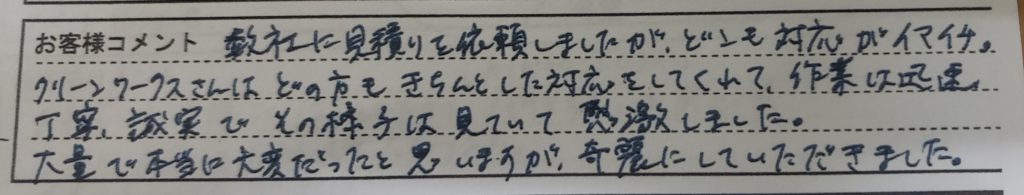 お客様コメント 数社に見積りを依頼しましたが、どこも対応がイマイチ。
クリーンワークスさんはどの方もきちんとした対応をしてくれて、作業は迅速、
丁寧、誠実でその様子は見ていて感激しました。
大量で本当に大変だったと思いますが、奇麗にしていただきました。